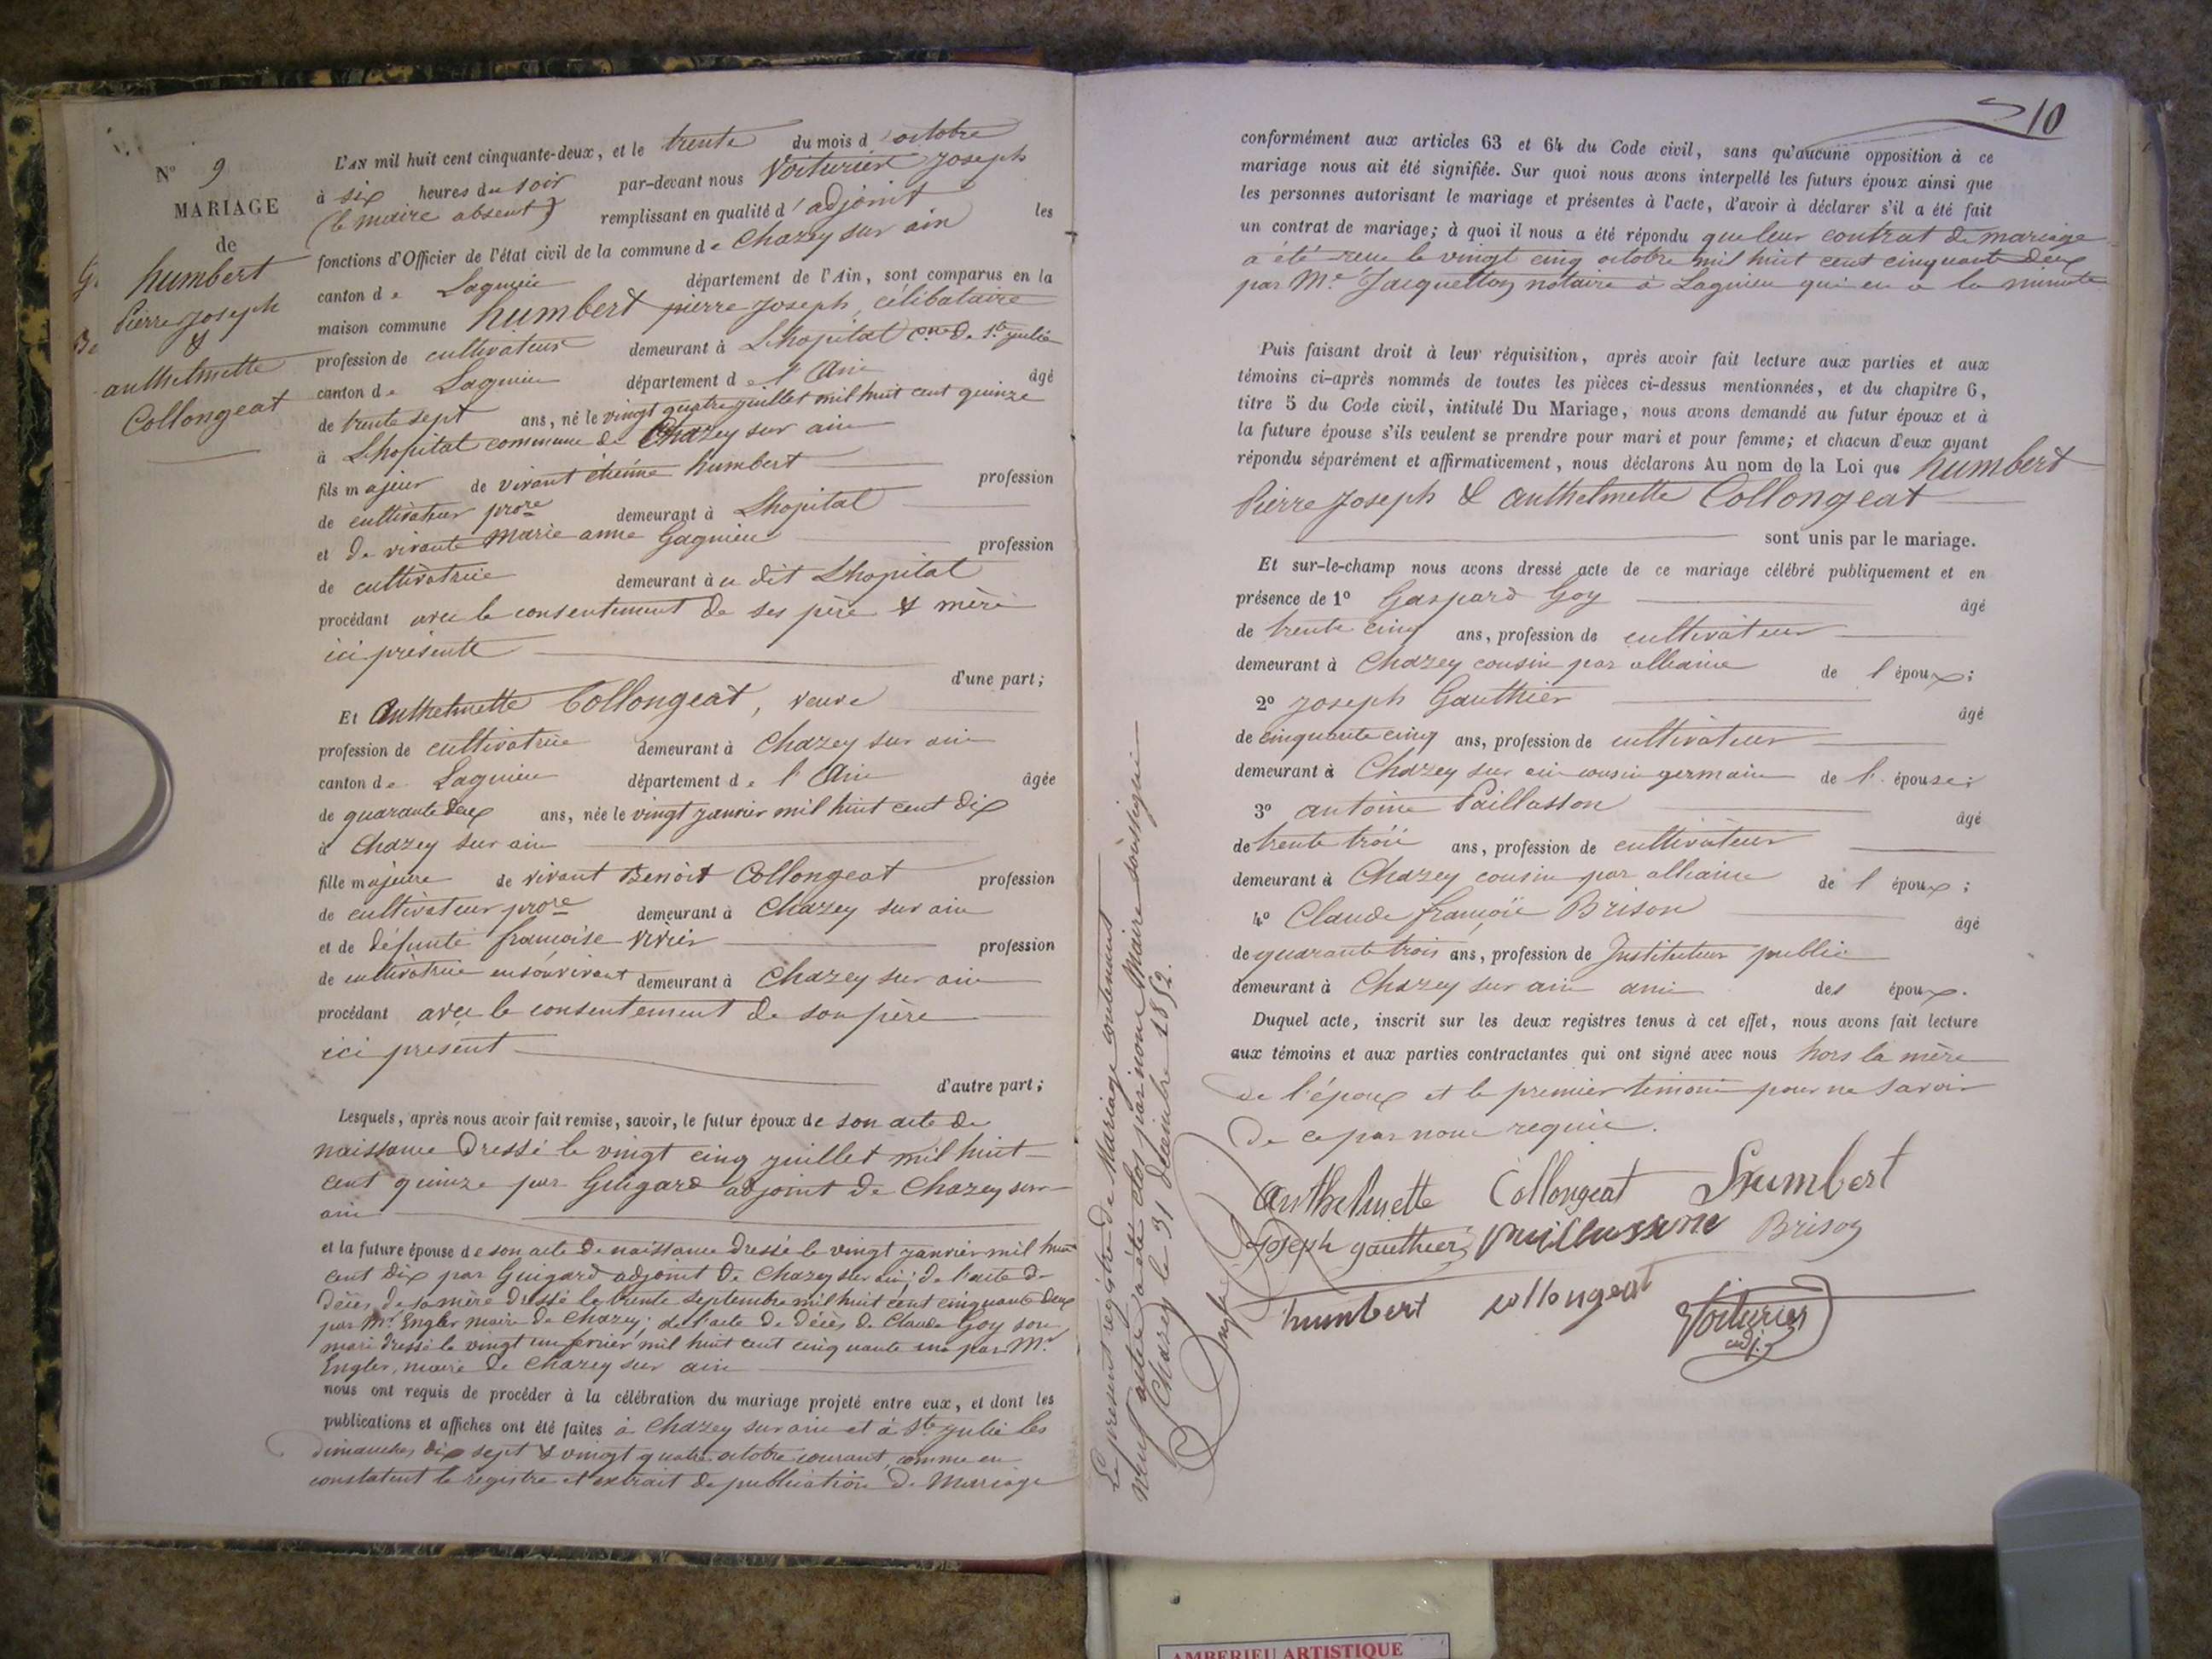 N° 9
MARIAGE
de
humbert
Pierre Joseph
&
anthelmette
Collongeat
L'AN mil huit cent cinquante-deux, et le trente du mois d'octobre
à six heures du soir par-devant nous Voiturier Joseph
(le maire absent) remplissant en qualité d'adjoint les
fonctions d'Officier de l'état civil de la commune de Chazey sur ain
canton de Lagnieu département de l'Ain, sont comparus en la
maison commune humbert pierre Joseph, célibataire
profession de cultivateur demeurant à Lhopital cne de Ste julie
canton de Lagnieu département de l'Ain âgé
de trente sept ans, né le vingt quatre juillet mil huit cent quinze
à Lhopital commune de Chazey sur ain
fils majeur de vivant étienne humbert profession
de cultivateur prore demeurant à Lhopital
et de vivante Marie anne Gagnieu profession
de cultivatrice demeurant à ce dit Lhopital
procédant avec le consentement de ses père & mère
ici présents
d'une part;
Et Anthelmette Collongeat, veuve
profession de cultivatrice demeurant à Chazey sur ain
canton de Lagnieu département de l'Ain âgée
de quarante deux ans, née le vingt janvier mil huit cent dix
à Chazey sur ain
fille majeure de vivant Benoit Collongeat profession
de cultivateur prore demeurant à Chazey sur ain
et de défunte françoise Vivier profession
de cultivatrice ensouvivant demeurant à Chazey sur ain
procédant avec le consentement de son père
ici présent
d'autre part;
Lesquels, après nous avoir fait remise, savoir, le futur époux de son acte de
naissance dressé le vingt cinq juillet mil huit
cent quinze par Guigard adjoint de Chazey sur
ain
et la future épouse de son acte de naissance dressé le vingt janvier mil huit
cent dix par Guigard adjoint de Chazey sur ain; de l'acte de
décès de sa mère dressé le trente septembre mil huit cent cinquante deux
par Mr Engler maire de Chazey; de l'acte de décès de Claude Goy son
mari dressé le vingt un fevrier mil huit cent cinquante un par Mr
Engler, maire de Chazey sur ain
nous ont requis de procéder à la célébration du mariage projeté entre eux, et dont les
publications et affiches ont été faites à Chazey sur ain et à Ste julie les
dimanches dix sept & vingt quatre octobre courant, comme en
constatent le registre et extrait de publication de Mariage
Le présent registre de Mariage contenant
neuf actes a été clos par nous Maire soussigné
Chazey le 31 décembre 1852.
Engler
10
conformément aux articles 63 et 64 du Code civil, sans qu'aucune opposition à ce
mariage nous ait été signifiée. Sur quoi nous avons interpellé les futurs époux ainsi que
les personnes autorisant le mariage et présentes à l'acte, d'avoir à déclarer s'il a été fait
un contrat de mariage; à quoi il nous a été répondu que leur contrat de mariage
a été reçu le vingt cinq octobre mil huit cent cinquante deux
par Me Jacquetton notaire à Lagnieu qui en a la minute
Puis faisant droit à leur réquisition, après avoir fait lecture aux parties et aux
témoins ci-après nommés de toutes les pièces ci-dessus mentionnées, et du chapitre 6,
titre 5 du Code civil, intitulé Du Mariage, nous avons demandé au futur époux et à
la future épouse s'ils veulent se prendre pour mari et pour femme; et chacun d'eux ayant
répondu séparément et affirmativement, nous déclarons Au nom de la Loi que humbert
Pierre Joseph & Anthelmette Collongeat
sont unis par le mariage.
Et sur-le-champ nous avons dressé acte de ce mariage célébré publiquement et en
présence de 1° Gaspard Goy âgé
de trente cinq ans, profession de cultivateur
demeurant à Chazey cousin par alliance de l'époux;
2° Joseph Gauthier âgé
de cinquante cinq ans, profession de cultivateur
demeurant à Chazey sur ain cousin germain de l'épouse;
3° antoine Paillasson âgé
de trente trois ans, profession de cultivateur
demeurant à Chazey cousin par alliance de l'époux;
4° Claude françois Brison âgé
de quarante trois ans, profession de Instituteur public
demeurant à Chazey sur ain ami des époux.
Duquel acte, inscrit sur les deux registres tenus à cet effet, nous avons fait lecture
aux témoins et aux parties contractantes qui ont signé avec nous hors la mère
de l'époux et le premier témoin pour ne savoir
de ce par nous requis.
Anthelmette Collongeat humbert
Joseph gauthier Paillassone Brison
humbert collongeat Voiturier
adj.
AMBERIEU ARTISTIQUE